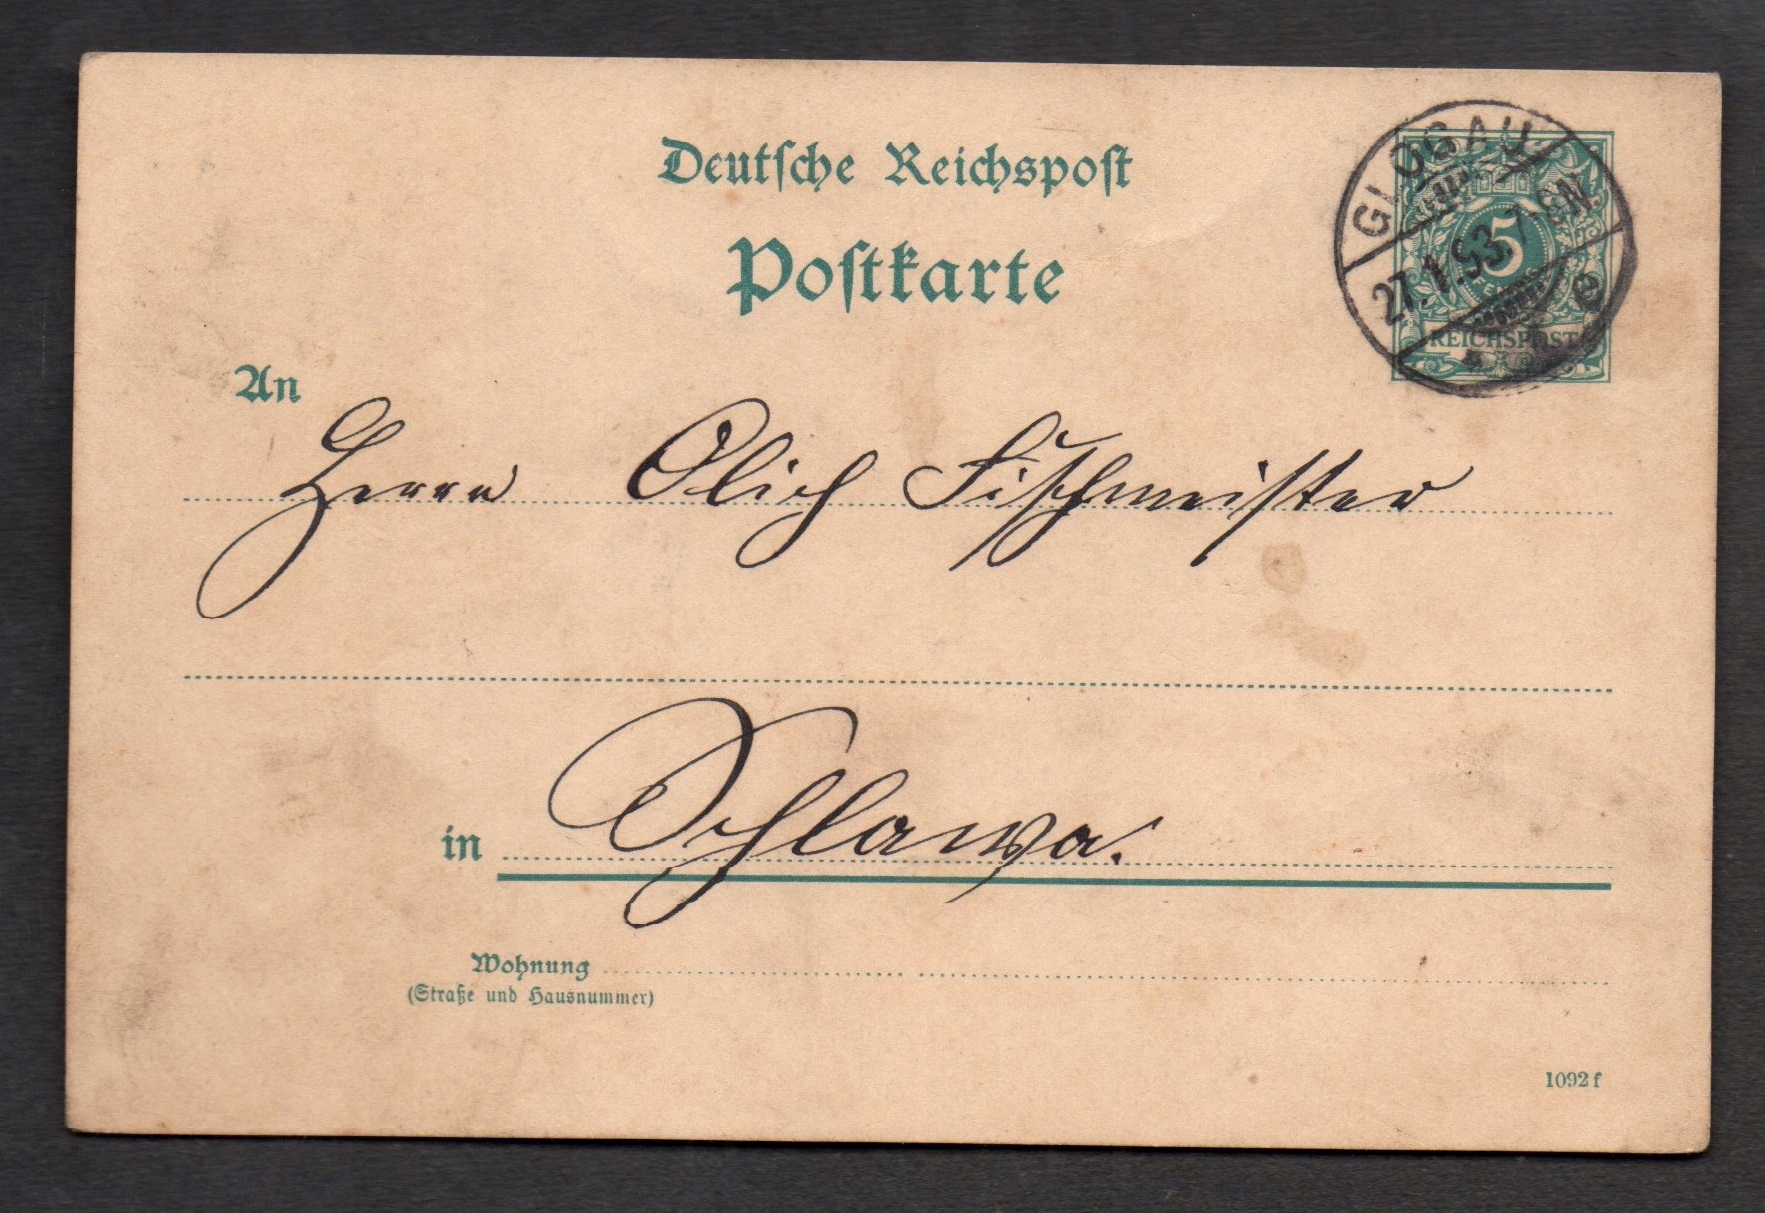 Deutsche Reichspost
Postkarte
GLOGAU
27.1.93.7-8N.
e
5
REICHSPOST
An
Herrn Olich Fischmeister
in Schlawa.
Wohnung
(Straße und Hausnummer)
1092 f